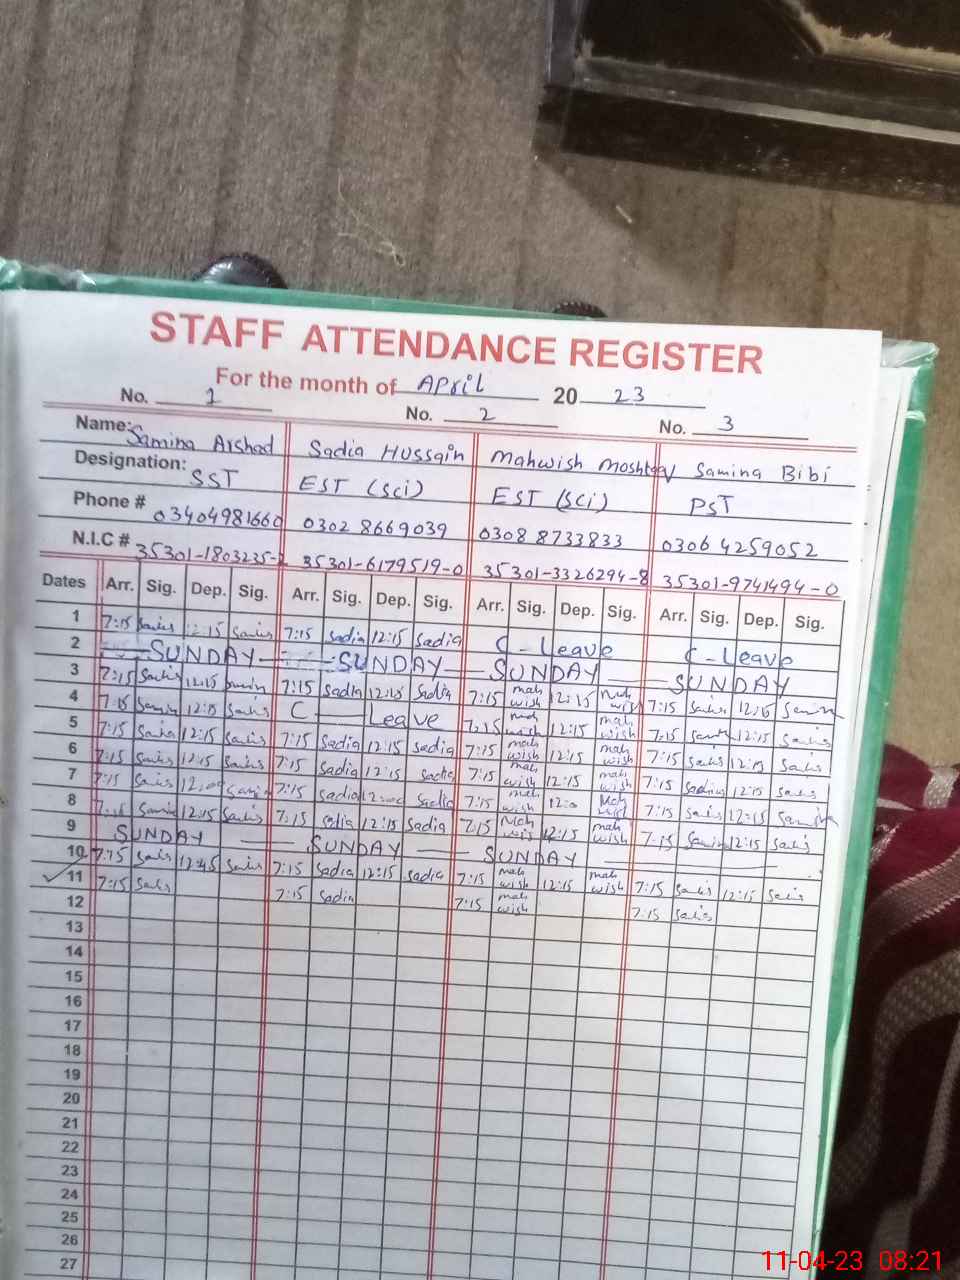 STAFF ATTENDANCE REGISTER
For the month of April 2023
No. 1 No. 2 No. 3
Name: Samina Arshad Sadia Hussain Mahwish Samina Bibi
Designation: SST EST (Sci) EST (Sci) PST
Phone # 03404981660 0302 8669039 0308 8733833 0306 4259052
N.I.C # 35301-1803235- 35301-6179519-0 35301-3326294-8 35301-9741494-0
Dates Arr. Sig. Dep. Sig. Arr. Sig. Dep. Sig. Arr. Sig. Dep. Sig. Arr. Sig. Dep. Sig.
1 7:15 12:15 7:15 Sadia 12:15 Sadia C-Leave C-Leave
2 SUNDAY SUNDAY SUNDAY SUNDAY
3 7:15 12:15 7:15 Sadia 12:15 Sadia 7:15 mahwish 12:15 mahwish 7:15 12:15
4 7:15 12:15 C Leave 7:15 mahwish 12:15 mahwish 7:15 12:15
5 7:15 12:15 7:15 Sadia 12:15 Sadia 7:15 mahwish 12:15 mahwish 7:15 12:15
6 7:15 12:15 7:15 Sadia 12:15 Sadia 7:15 mahwish 12:15 mahwish 7:15 12:15
7 7:15 12:00 7:15 Sadia 12:00 Sadia 7:15 mahwish 12:0 mahwish 7:15 12:15
8 7:15 12:15 7:15 Sadia 12:15 Sadia 7:15 mahwish 12:15 mahwish 7:15 12:15
9 SUNDAY SUNDAY SUNDAY
10 7:15 12:45 7:15 Sadia 12:15 Sadia 7:15 mahwish 12:15 mahwish 7:15 12:15
11 7:15 7:15 Sadia 7:15 mahwish 7:15
12
13
14
15
16
17
18
19
20
21
22
23
24
25
26
27
11-04-23 08:21